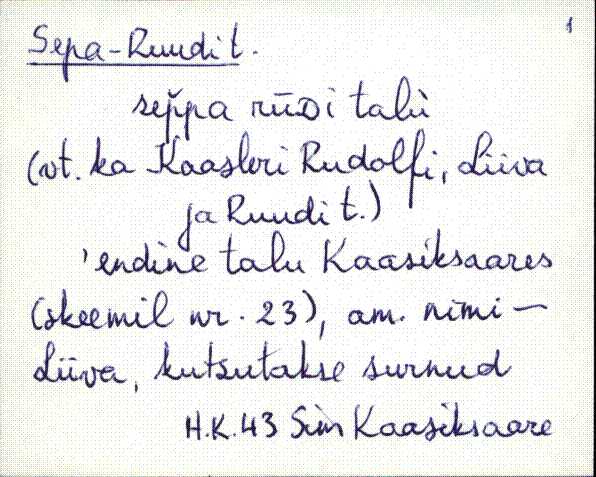 1
Sepa-Ruudi t.
sep̆pa rūᴅi talù
(vt. ka Kaasleri Rudolfi, Liiva
ja Ruudi t.)
'endine talu Kaasiksaares
(skeemil nr. 23), am. nimi —
Liiva, kutsutakse surnud
H.K. 43 Sim Kaasiksaare